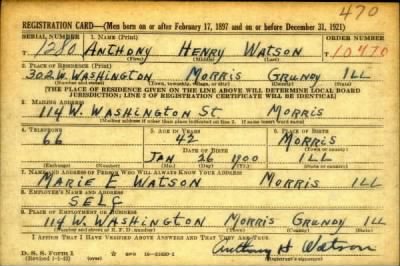 470
REGISTRATION CARD—(Men born on or after February 17, 1897 and on or before December 31, 1921)
SERIAL NUMBER 1. NAME (Print) ORDER NUMBER
T 1280 ANTHONY HENRY WATSON T 10470
(First) (Middle) (Last)
2. PLACE OF RESIDENCE (Print)
302 W. WASHINGTON MORRIS GRUNDY ILL
(Number and street) (Town, township, village, or city) (County) (State)
[THE PLACE OF RESIDENCE GIVEN ON THE LINE ABOVE WILL DETERMINE LOCAL BOARD
JURISDICTION; LINE 2 OF REGISTRATION CERTIFICATE WILL BE IDENTICAL]
3. MAILING ADDRESS
114 W. WASHINGTON ST. MORRIS
[Mailing address if other than place indicated on line 2. If same insert word same]
4. TELEPHONE 5. AGE IN YEARS 6. PLACE OF BIRTH
66 42 MORRIS
DATE OF BIRTH (Town or county)
JAN 26 1900 ILL
(Exchange) (Number) (Mo.) (Day) (Yr.) (State or country)
7. NAME AND ADDRESS OF PERSON WHO WILL ALWAYS KNOW YOUR ADDRESS
MARIE E WATSON MORRIS ILL
8. EMPLOYER'S NAME AND ADDRESS
SELF
9. PLACE OF EMPLOYMENT OR BUSINESS
114 W. WASHINGTON MORRIS GRUNDY ILL
(Number and street or R. F. D. number) (Town) (County) (State)
I AFFIRM THAT I HAVE VERIFIED ABOVE ANSWERS AND THAT THEY ARE TRUE.
D. S. S. Form 1 Anthony H Watson
(Revised 1-1-42) (over)